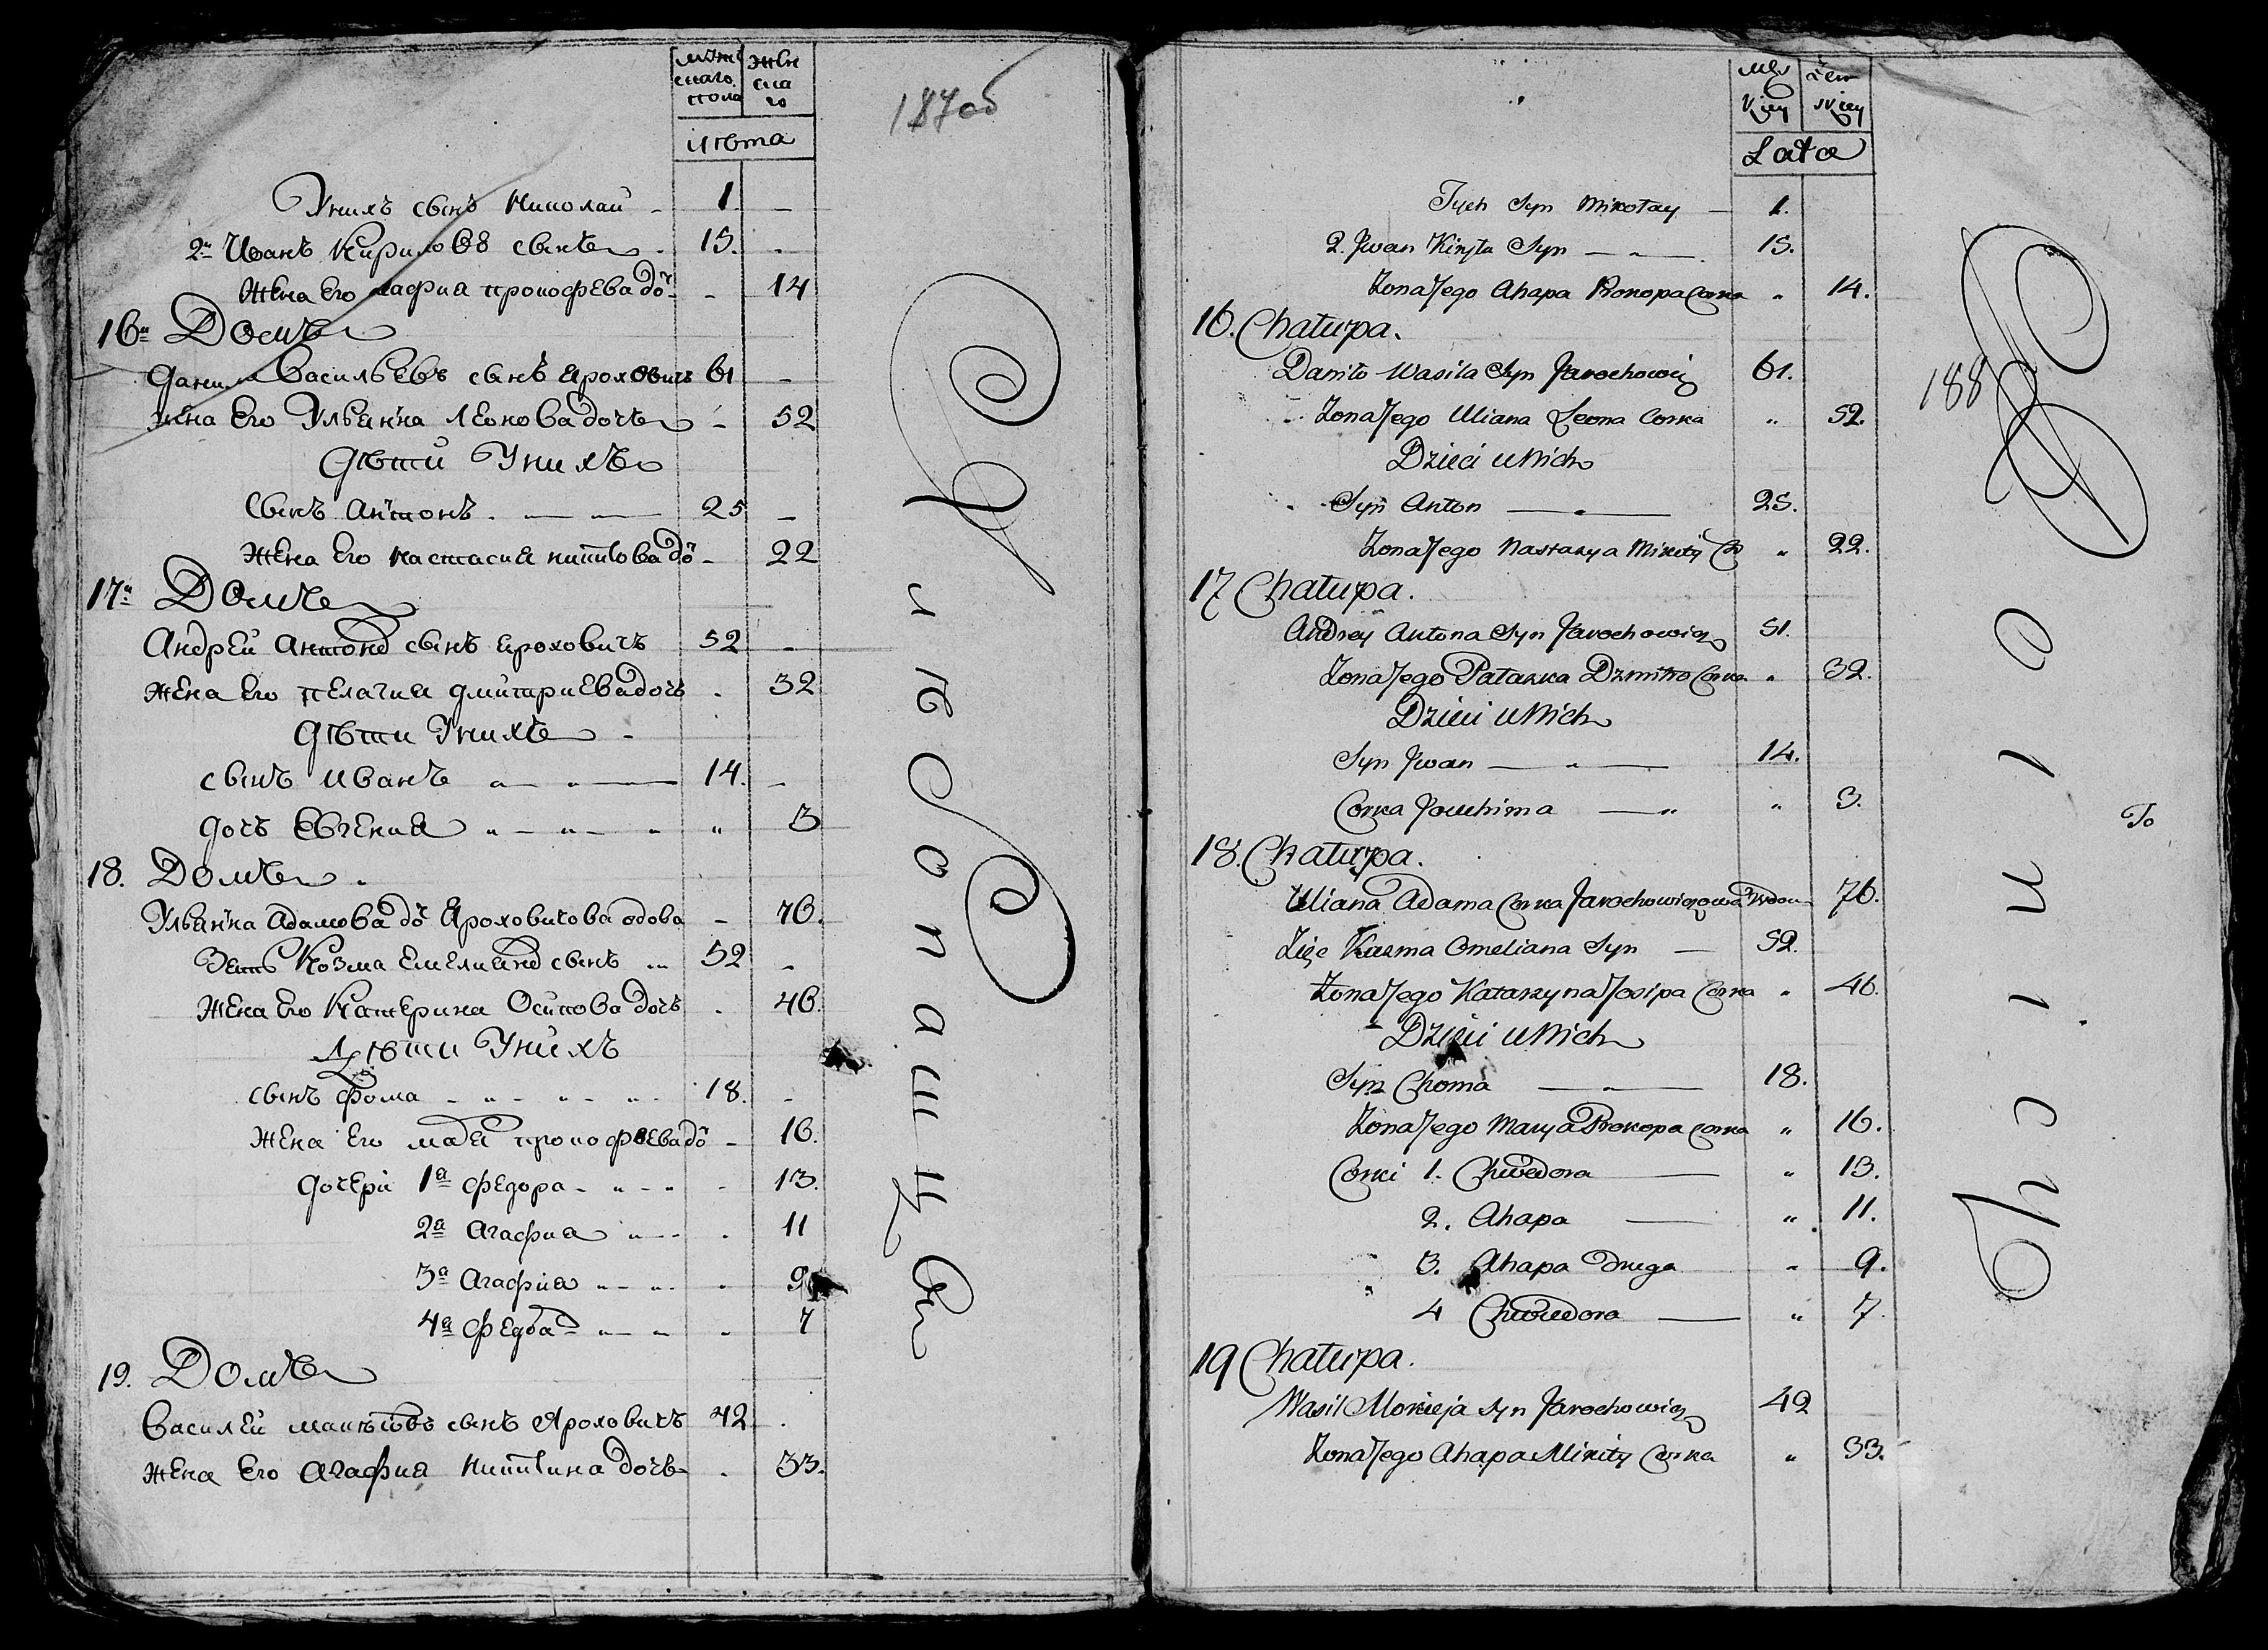 мужескаго пола
женскаго
лѣта
187об
Унихъ сынъ Николай - 1 -
2й Иванъ Кириловъ сынъ - 15. -
Жена Его Агафиа прокофева дочь - 14
16й Домъ
Данила Васильевъ сынъ Ярохович 61 -
жена Его Ульяна Леонова дочь - 52
Дѣти Унихъ
Сынъ Антонъ - 25 -
Жена Его Настасиа никитова дочь - 22
17й Домъ
Андрей Антоновъ сынъ ярохович 52 -
жена Его пелагиа дмитриева дочь - 32
Дѣти Унихъ -
сынъ иванъ " " 14. -
дочь Евгениа " " " " 3
18. Домъ
Ульяна Адамова дочь Яроховичова вдова - 76.
Зять Козма Емелиановъ сынъ 52 -
Жена Его Катерина Осипова дочь - 46.
Дѣти Унихъ
сынъ Фома - " - " - " - 18. -
Жена Его прокофиева дочь - 16.
дочери 1а Федора - " - " - 13.
2а Агафиа " - - 11
3а Агафиа " - " - 9
4а Федора " - " - 7
19. Домъ
Василей сынъ Ярохович 42 .
жена Его Агафиа Никитина дочь - 33.
Мѣсо пащъ
męzkiey
żenskiey
Lata
188
Tych Syn Mikołay - 1.
2. Jwan Kiryła Syn - " - 15.
Żona Jego Ahapa Prokopa Corka " 14.
16. Chałupa.
Daniło Wasila Syn Jarochowicz 61.
Żona Jego Uliana Leona Corka " 52.
Dzieci u Nich
Syn Anton - " - 25.
Żona Jego Nastazya Mikity C " 22.
17 Chałupa.
Andrey Antona Syn Jarochowicz 51.
Żona Jego Pałaszka Dzmitro Corka " 32.
Dzieci u Nich
Syn Jwan - " - 14.
Corka Jouchima - " " 3.
18. Chałupa.
Uliana Adama Corka Jarochowiczowa Wdow 76.
Zięc Kuzma Omeliana Syn - 52.
Żona Jego Katarzyna Josipa Corka " 46.
Dzieci u Nich
Syn Choma - " - 18.
Żona Jego Marya Prokopa Corka " 16.
Corki 1. Chwedora - " 13.
2. Ahapa - " 11.
3. Ahapa Druga " 9.
4 Chwiedora - " 7.
19 Chałupa.
Wasil Mokieja Syn Jarochowicz 42
Żona Jego Ahapa Mikity Corka " 33.
To